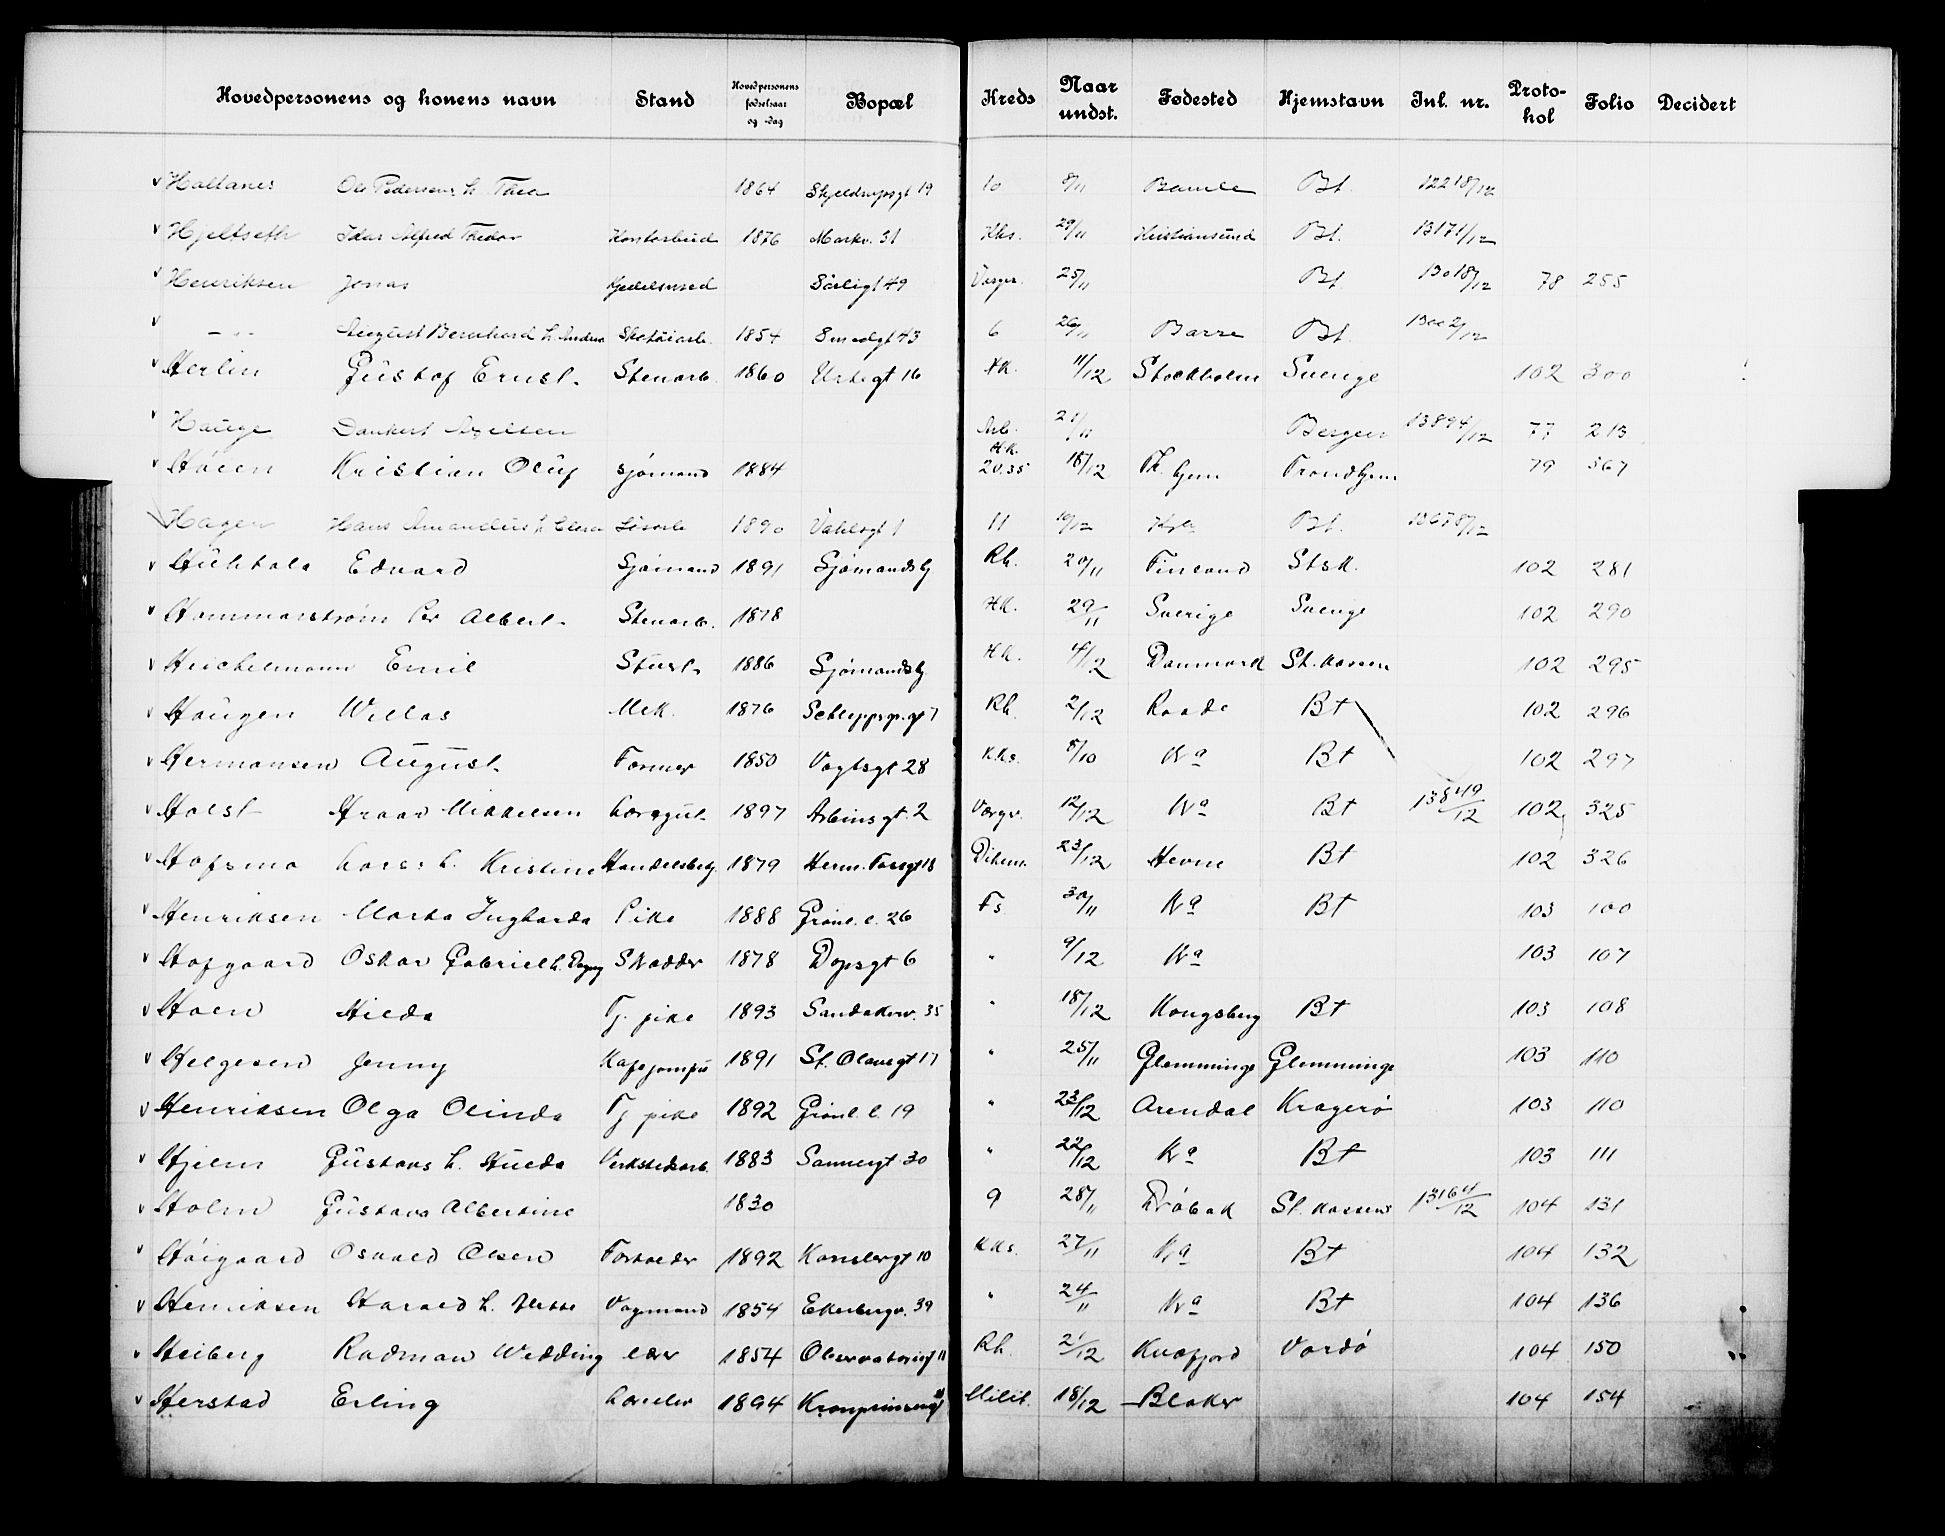 Hovedpersonens og konens navn Stand Hovedpersonens fødselsaar og -dag Bopæl Kreds Naar undst. Fødested Hjemstavn Inl. nr. Protokol Folio Decidert
Haltanes Ole Pedersens h. Thea 1864 Skjeldrupsgt 19 10 8/11 Bamle Bt. 12218/12
Hjeltseth Idar Alfred Theodor Kontorbud 1876 Markv. 31 Kks. 29/11 Kristiansund Bt. 13171/12
Henriksen Jonas Kjedelsmed Sörligt 49 Værger. 25/11 Bt. 13018/12 78 255
— " — August Bernhard h. Andrea Skotöiarb. 1854 Smedgt 43 6 26/11 Borre Bt. 13002/12
Herlin Gustaf Ernst Stenarb. 1860 Urtegt 16 HK. 11/12 Stockholm Sverige 102 300
Hauge Dankert Axelsen Arb. 21/11 Bergen 13894/12 77 213
Høien Kristian Oluf Sjømand 1884 HK. 20.35 18/12 Th.hjem Trondhjem 79 367
Hagen Hans Amandus h. Clara Lösarb 1890 Vahlsgt 1 11 10/12 Bt. 13678/12
Huhtala Edvard Sjömand 1891 Sjömandshj Rh. 20/11 Finland Stsk. 102 281
Hammarström Per Albert Stenarb. 1878 HK. 29/11 Sverige Sverige 102 290
Heichelmann Emil Stuert 1886 Sjømandshj HK. 4/12 Danmark St. kassen 102 295
Haugen Willas Mek. 1876 Schleppgr.gt 7 Rh. 2/12 Raade Bt 102 296
Hermansen August Former 1850 Vogtsgt 28 KKs. 8/10 Kra Bt 102 297
Holst Hroar Mikkelsen Læregut 1897 Arbinsgt. 2 Værgr. 12/12 Kra Bt 13849/12 102 325
Hofsmo Lars h. Kristine Handelsbetj. 1879 Herm. Fossgt 13 Dikem. 23/12 Hevne Bt 102 326
Henriksen Marta Ingbarda Pike 1888 Grönl. l. 26 Fs 30/11 Kra Bt 103 100
Hofgaard Oskar Gabriel h. Dagny Skrædder 1878 Dopsgt 6 " 9/12 Kra 103 107
Hoen Hilda Tj. pike 1893 Sandakerv. 35 " 18/12 Kongsberg Bt 103 108
Helgesen Jenny Kafejomfru 1891 St. Olavsgt 17 " 25/11 Glemminge Glemminge 103 110
Henriksen Olga Olinda Tj pike 1892 Grönl. l. 19 " 23/12 Arendal Kragerø 103 110
Hjelm Gustavs h. Hulda Verkstedsarb. 1883 Sannergt 30 " 22/12 Kra Bt 103 111
Holm Gustava Albertine 1830 9 28/11 Drøbak St. kassen 13164/12 104 131
Höigaard Osvald Olsen Forholder 1892 Konsbergt 10 KKs. 27/11 Kra Bt 104 132
Henriksen Harald h. Vogmand 1854 Ekerbergv. 39 " 24/11 Kra Bt 104 136
Heiberg Rodman Wedding Elev 1854 Observatoriegt 11 Rh. 2/12 Kvæfjord Vardö 104 150
Herstad Erling Handler 1894 Kronprinsensgt Milit. 18/12 Blaker 104 154